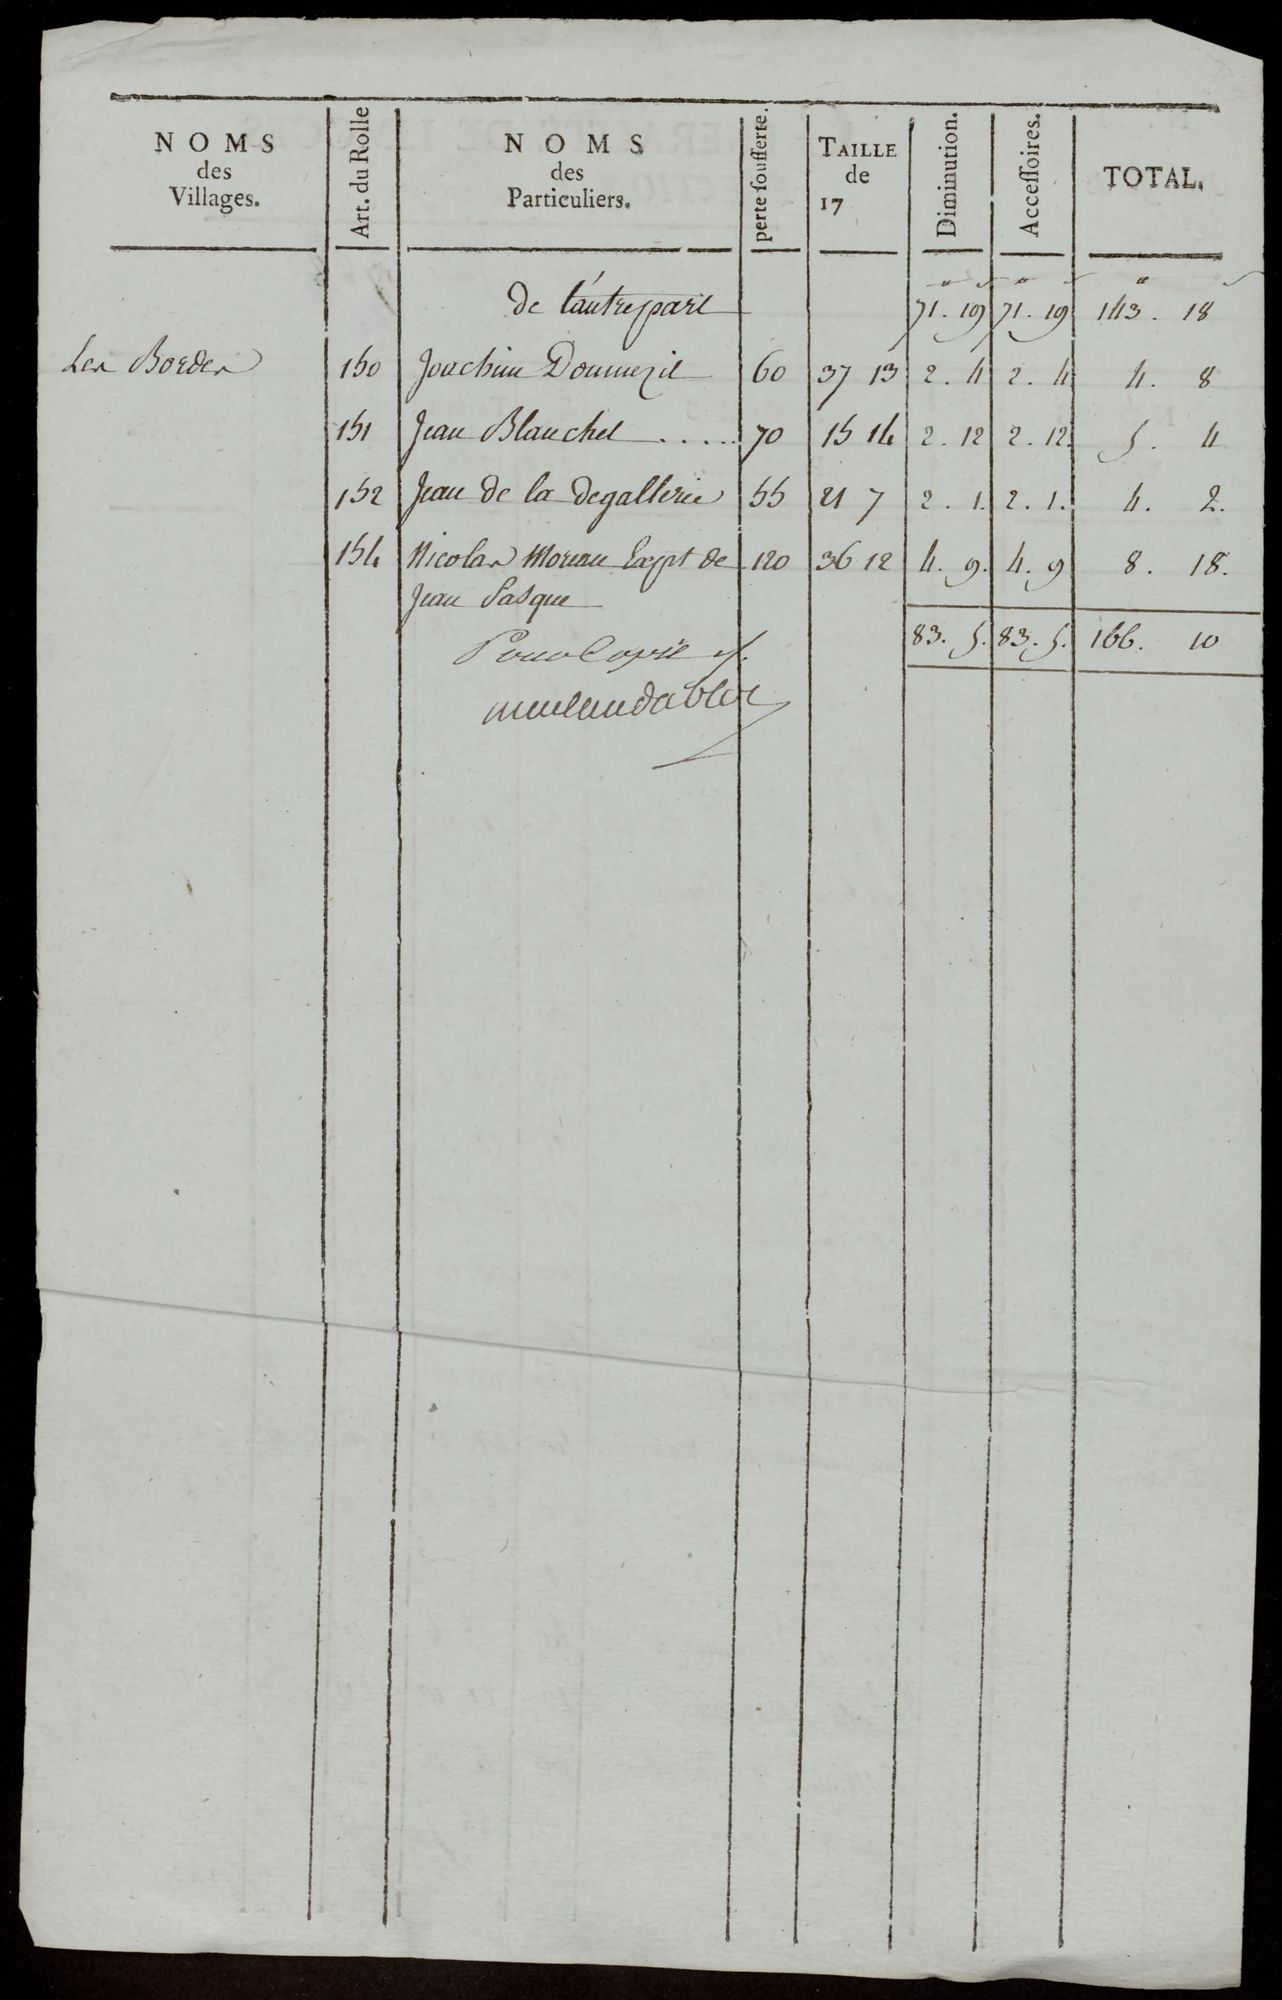 NOMS des Villages. | Art. du Rolle | NOMS des Particuliers. | perte soufferte. | TAILLE de 17 | Diminution. | Accessoires. | TOTAL.
de l'autre part | 71. 19 | 71. 19 | 143. 18
Les Bordes | 150 | Joachim Doumezil | 60 | 37 13 | 2. 4 | 2. 4 | 4. 8
151 | Jean Blanchet ..... | 70 | 15 14 | 2. 12 | 2. 12. | 5. 4
152 | Jean de la degallerie | 55 | 21 7 | 2. 1. | 2. 1. | 4. 2.
154 | Nicolas Moreau Expt de | 120 | 36 12 | 4. 9. | 4. 9 | 8. 18.
Jean Pasque
83. 5. | 83. 5. | 166. 10
Pour Copie
meulandablox